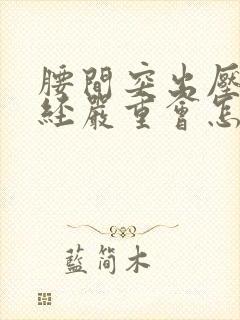 腰間突出壓
經嚴重會怎
藍简木